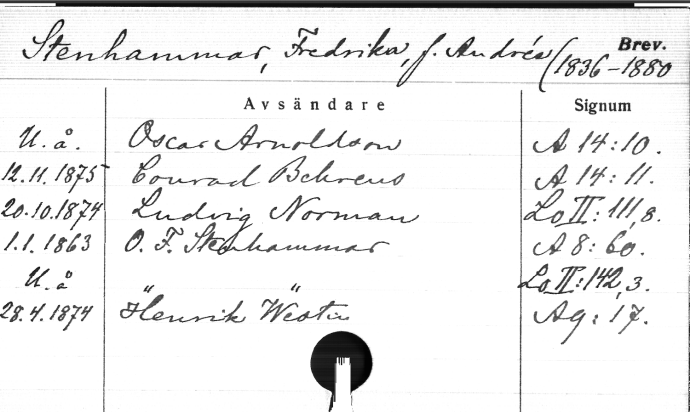 Stenhammar, Fredrika, f. Andrée (1836–1880 Brev.
Avsändare Signum
U. å. Oscar Arnoldson A 14:10.
12.11.1875 Conrad Behrens A 14:11.
20.10.1874 Ludvig Norman Lo II:111, 8.
1.1.1863 O. F. Stenhammar A 8:60.
U. å " " Lo II:142, 3.
28.4.1874 Henrik Westin A9:17.